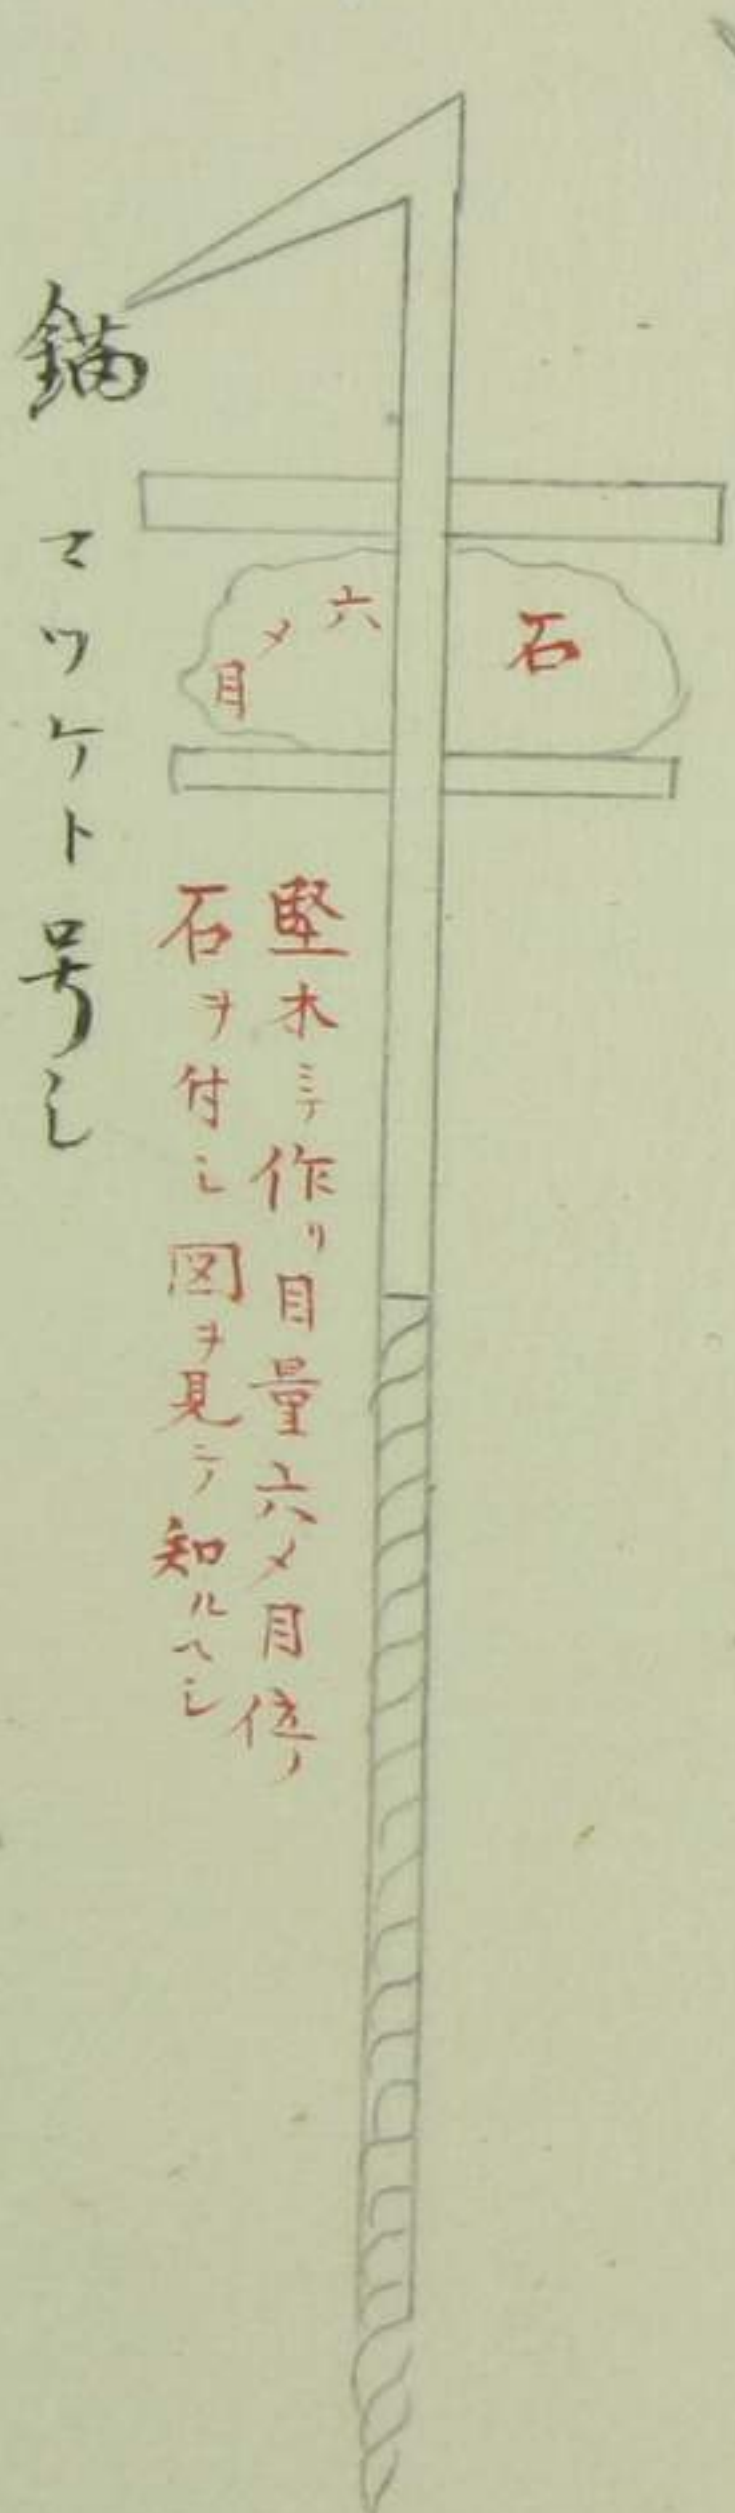 石
六
メ
目
堅木ニテ作リ目量六メ目位ノ
石ヲ付シ図ヲ見テ知ルヘシ
錨 マツケト号シ